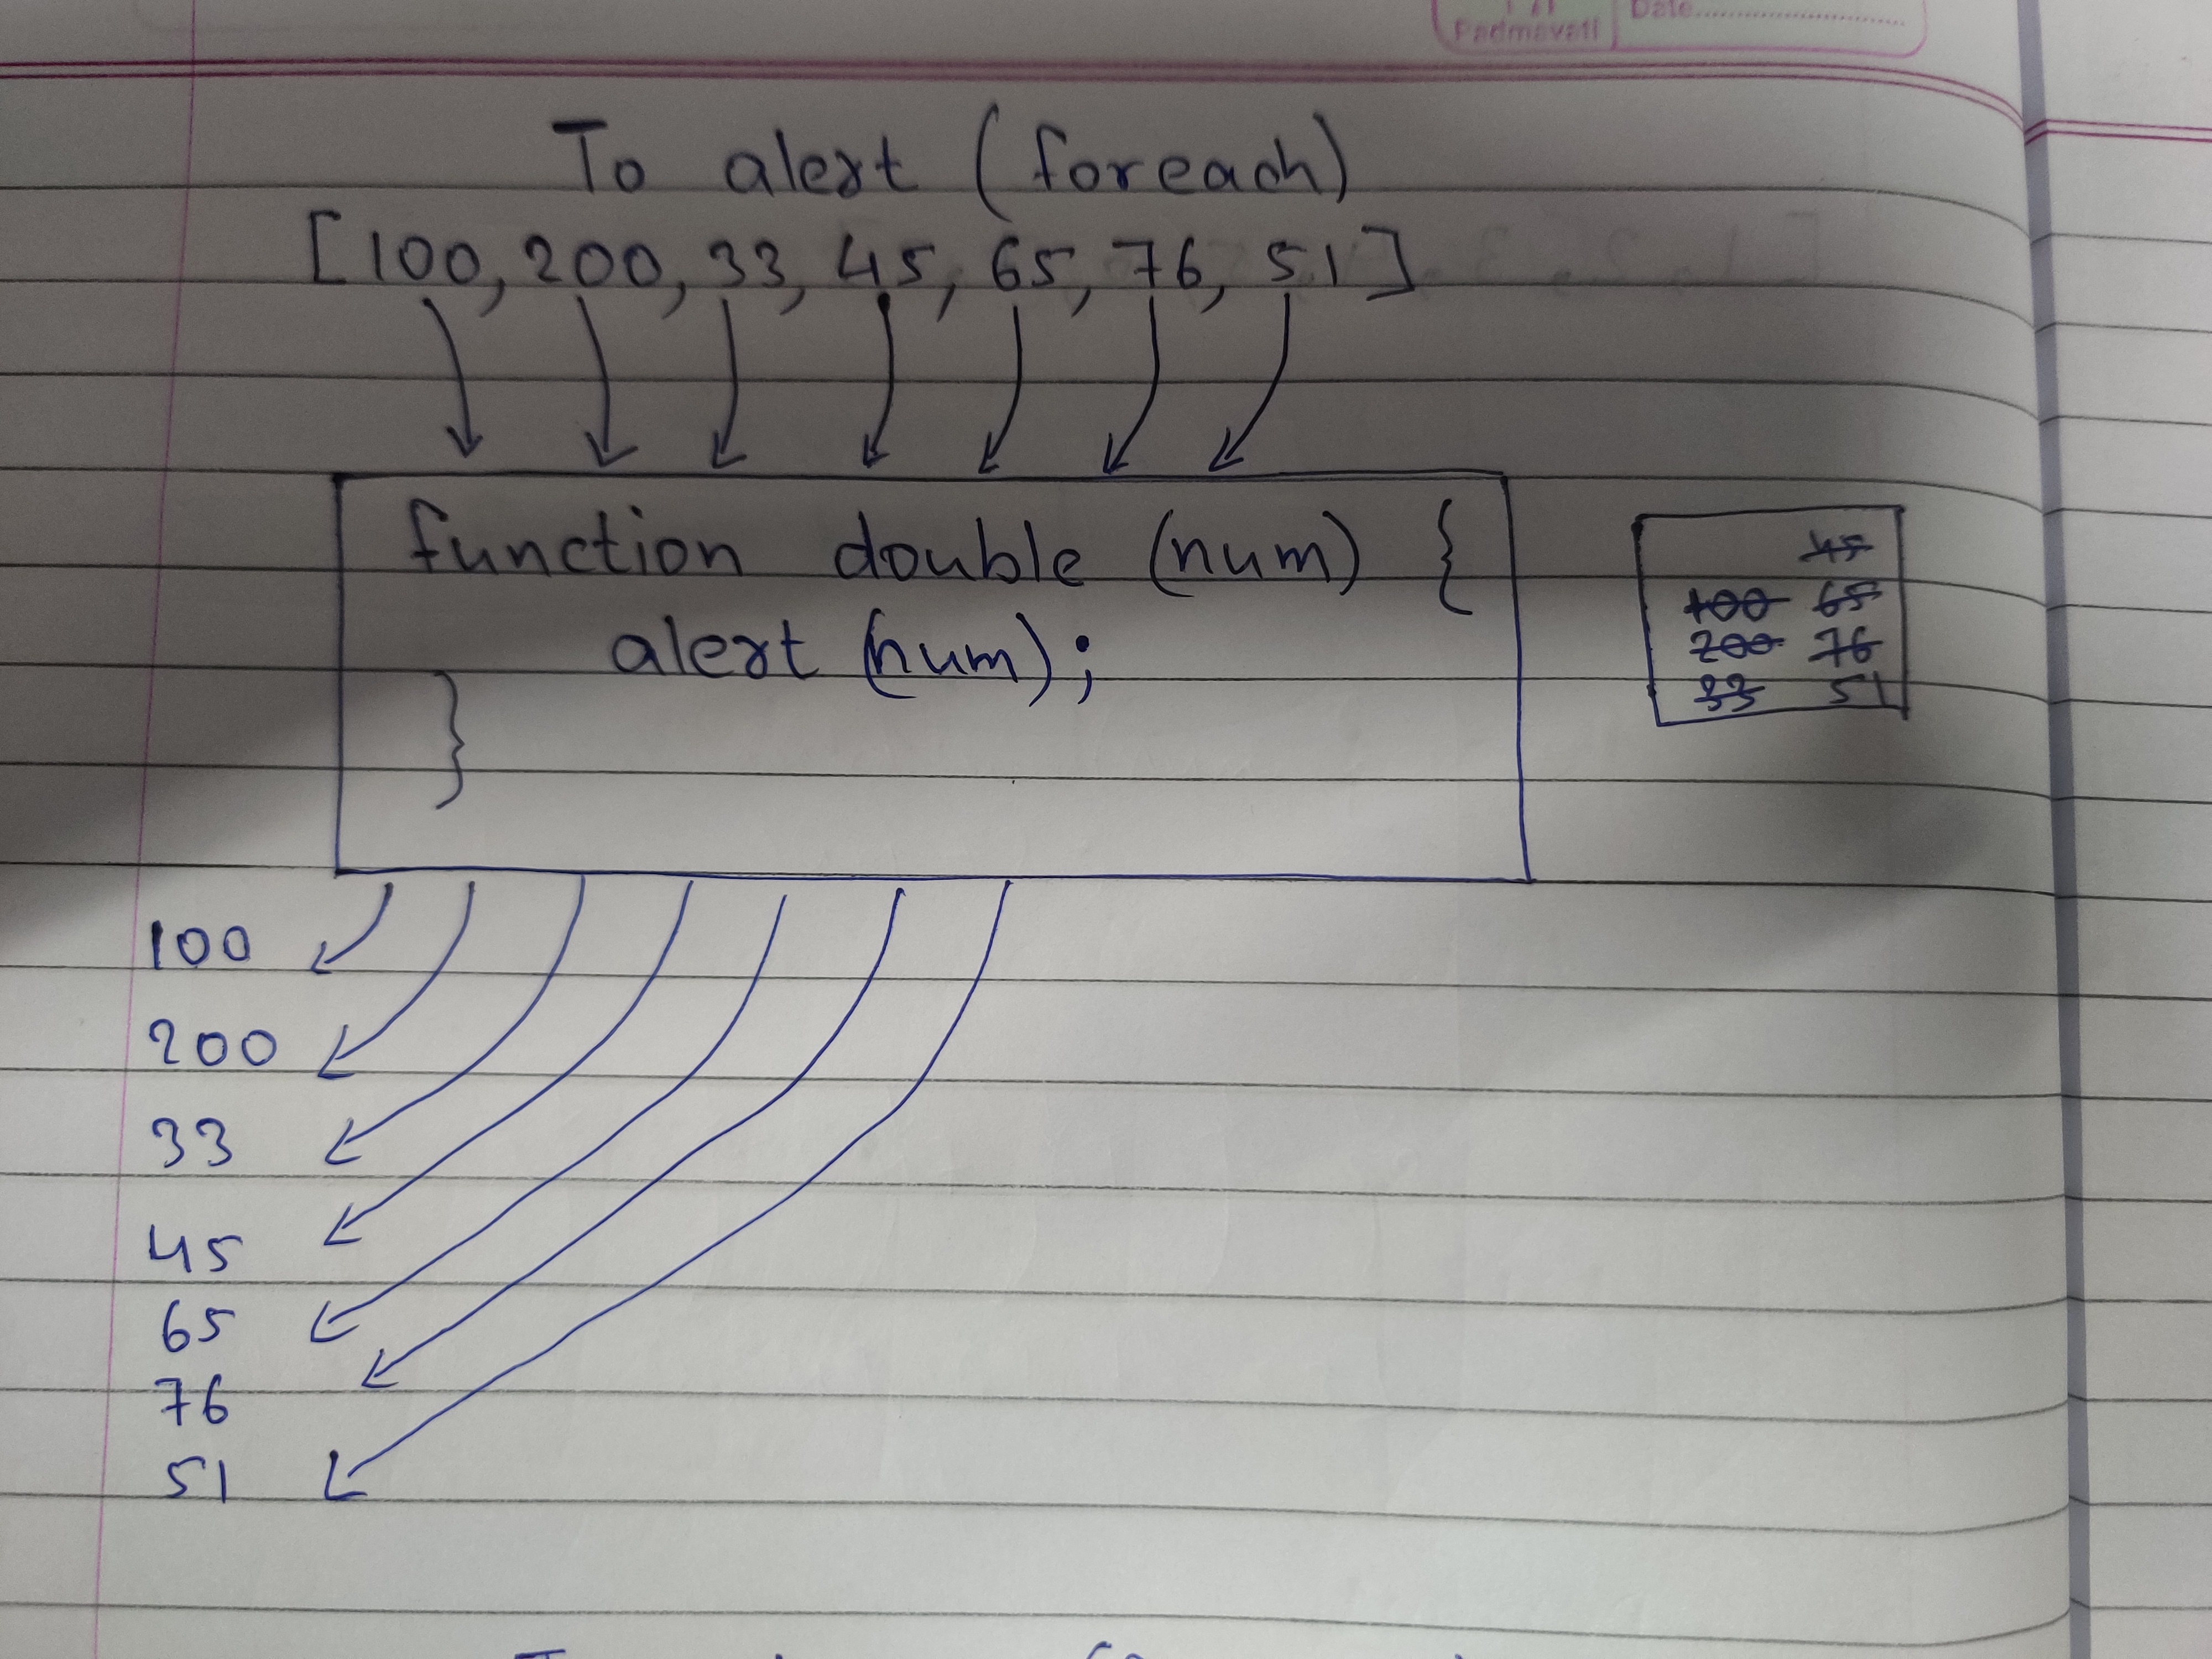 Padmavati Date
To alert (foreach)
[100, 200, 33, 45, 65, 76, 51]
function double (num) {
alert (num);
}
45
100 65
200 76
33 51
100
200
33
45
65
76
51